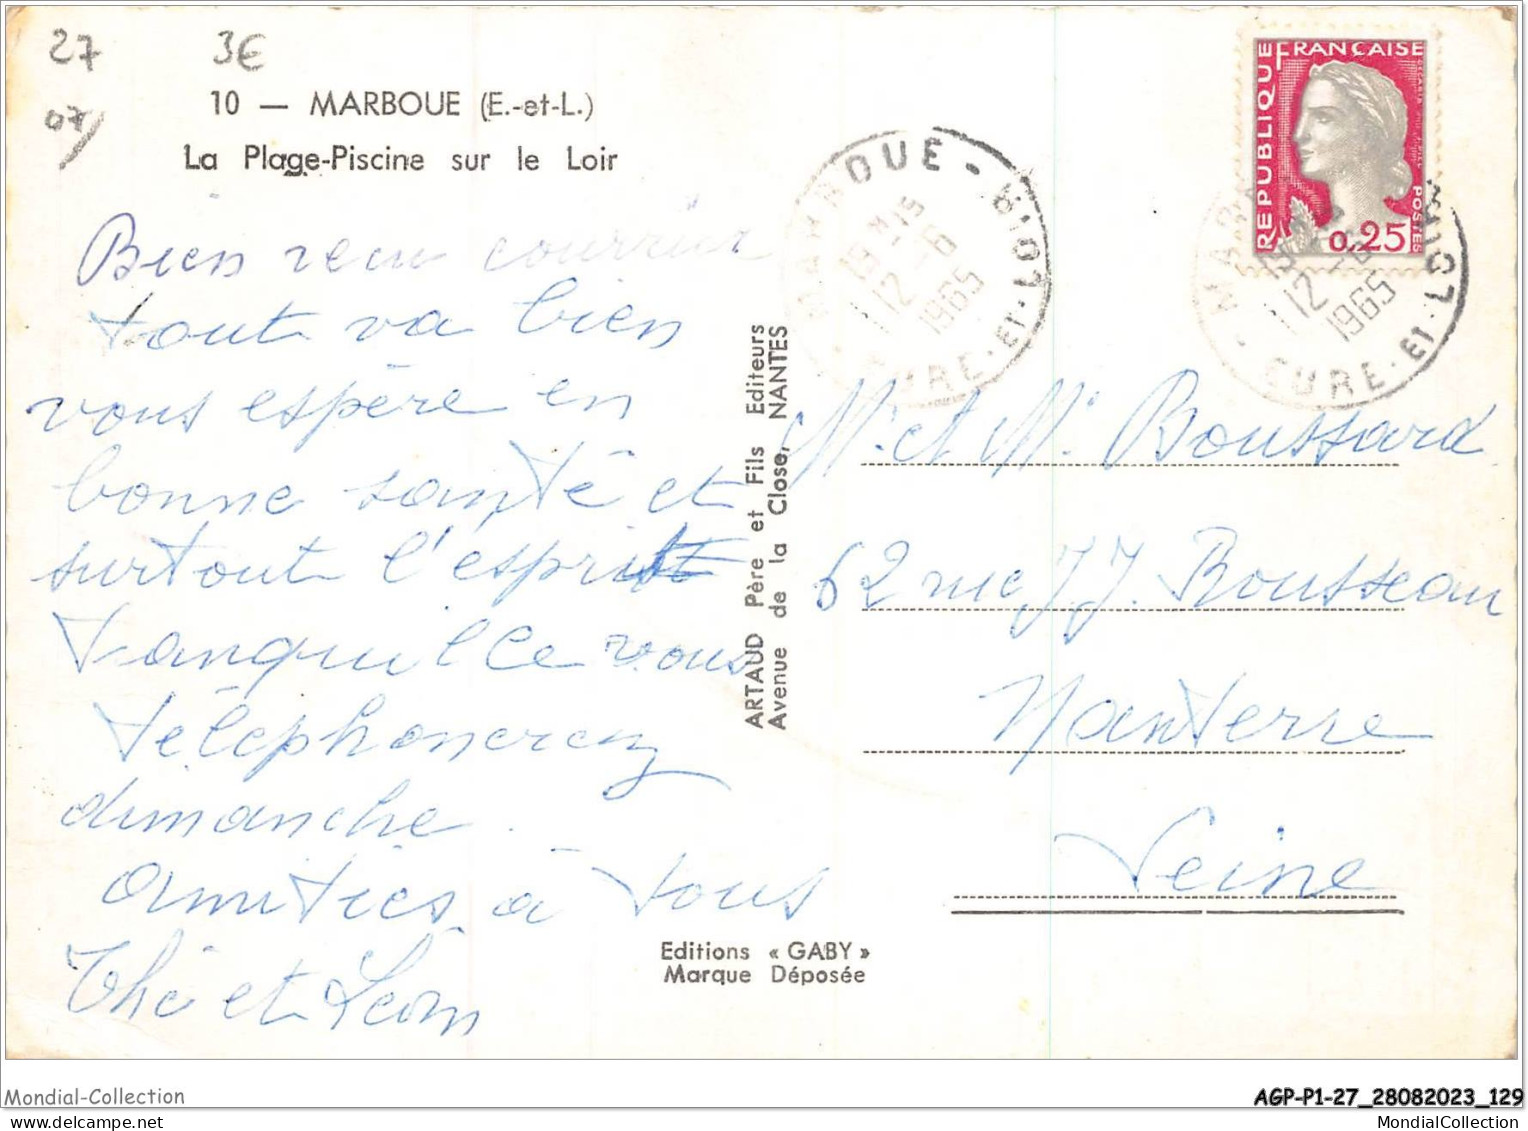 27
3€
07/
10 — MARBOUE (E.-et-L.)
La Plage-Piscine sur le Loir
Bien recu courrier
tout va bien
vous espère en
bonne santé et
surtout l'esprit
tranquille vous
téléphonerez
dimanche
amitiés à tous
Thé et Léon
ARTAUD Père et Fils Editeurs
Avenue de la Close, NANTES
Editions « GABY »
Marque Déposée
MARBOUE
19H15
12-6
1965
EURE-ET-LOIR
REPUBLIQUE FRANCAISE
POSTES
0,25
MARBOUE
12-6
1965
EURE-ET-LOIR
Mr et Me Boussard
62 rue J J. Rousseau
Nanterre
Seine
Mondial-Collection
AGP-P1-27_28082023_129
MondialCollection